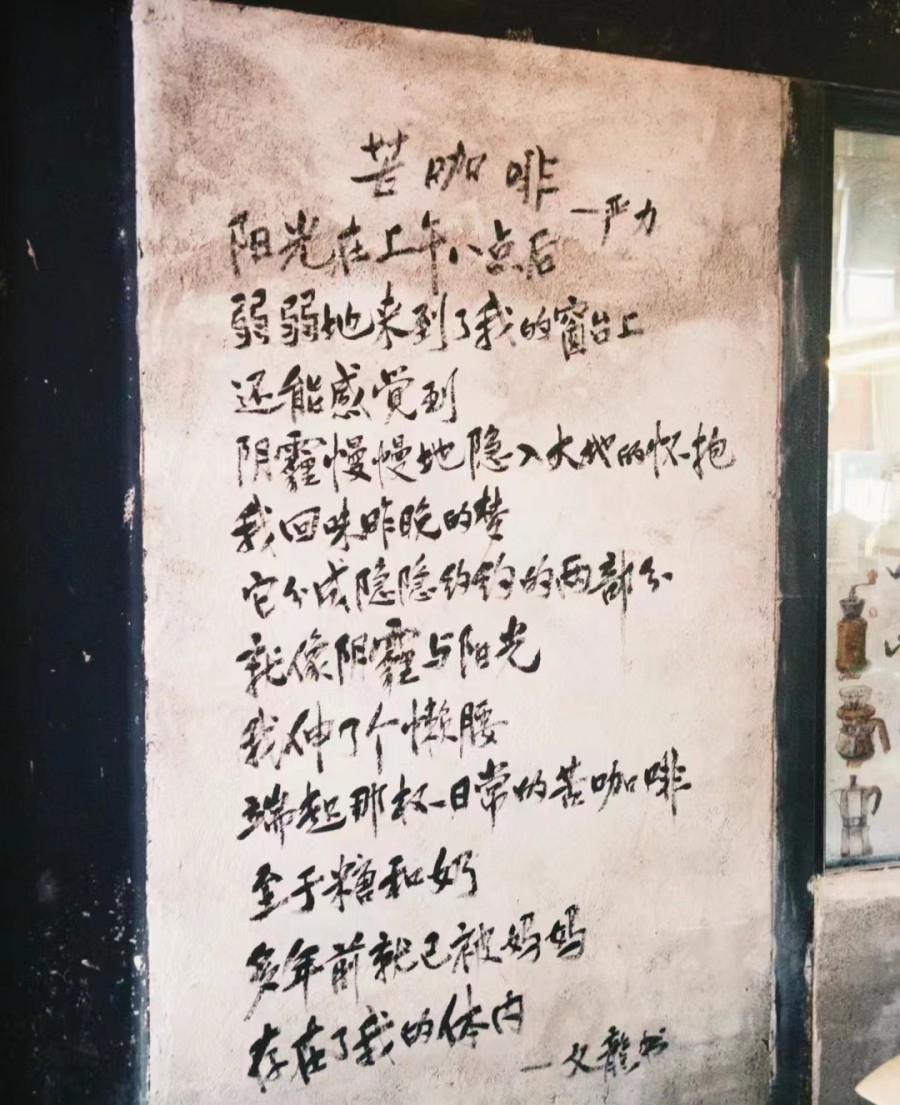 苦咖啡
—严力
阳光在上午八点后
弱弱地来到了我的窗台上
还能感觉到
阴霾慢慢地隐入大地的怀抱
我回味昨晚的梦
它分成隐隐约约的两部分
就像阴霾与阳光
我伸了个懒腰
端起那杯日常的苦咖啡
至于糖和奶
多年前就已被妈妈
存在了我的体内
—文龍书